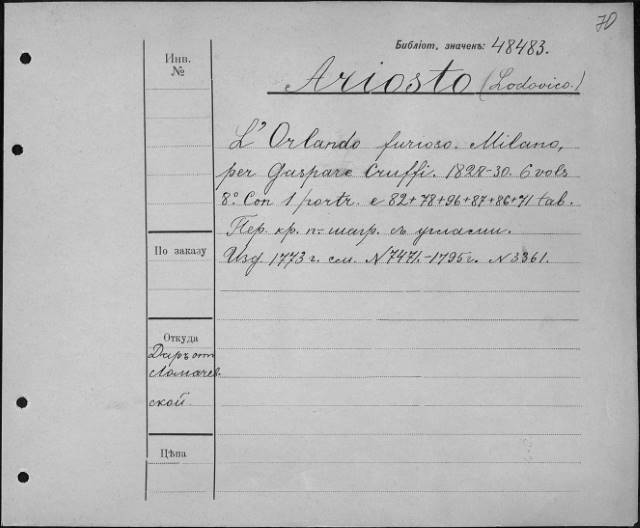 70
Библіот. значекъ: 48483.
Инв.
№
Ariosto (Lodovico.)
L' Orlando furioso. Milano,
per Gaspare Truffi. 1828-30. 6 vols
8º. Con 1 portr. e 82+78+96+87+86+71 tab.
Пер. кр. п-шагр. съ углами.
По заказу
Изд. 1773 г. см. N7471.-1795 г. N3361.
Откуда
Даръ от
Ломачев-
ской.
Цѣна